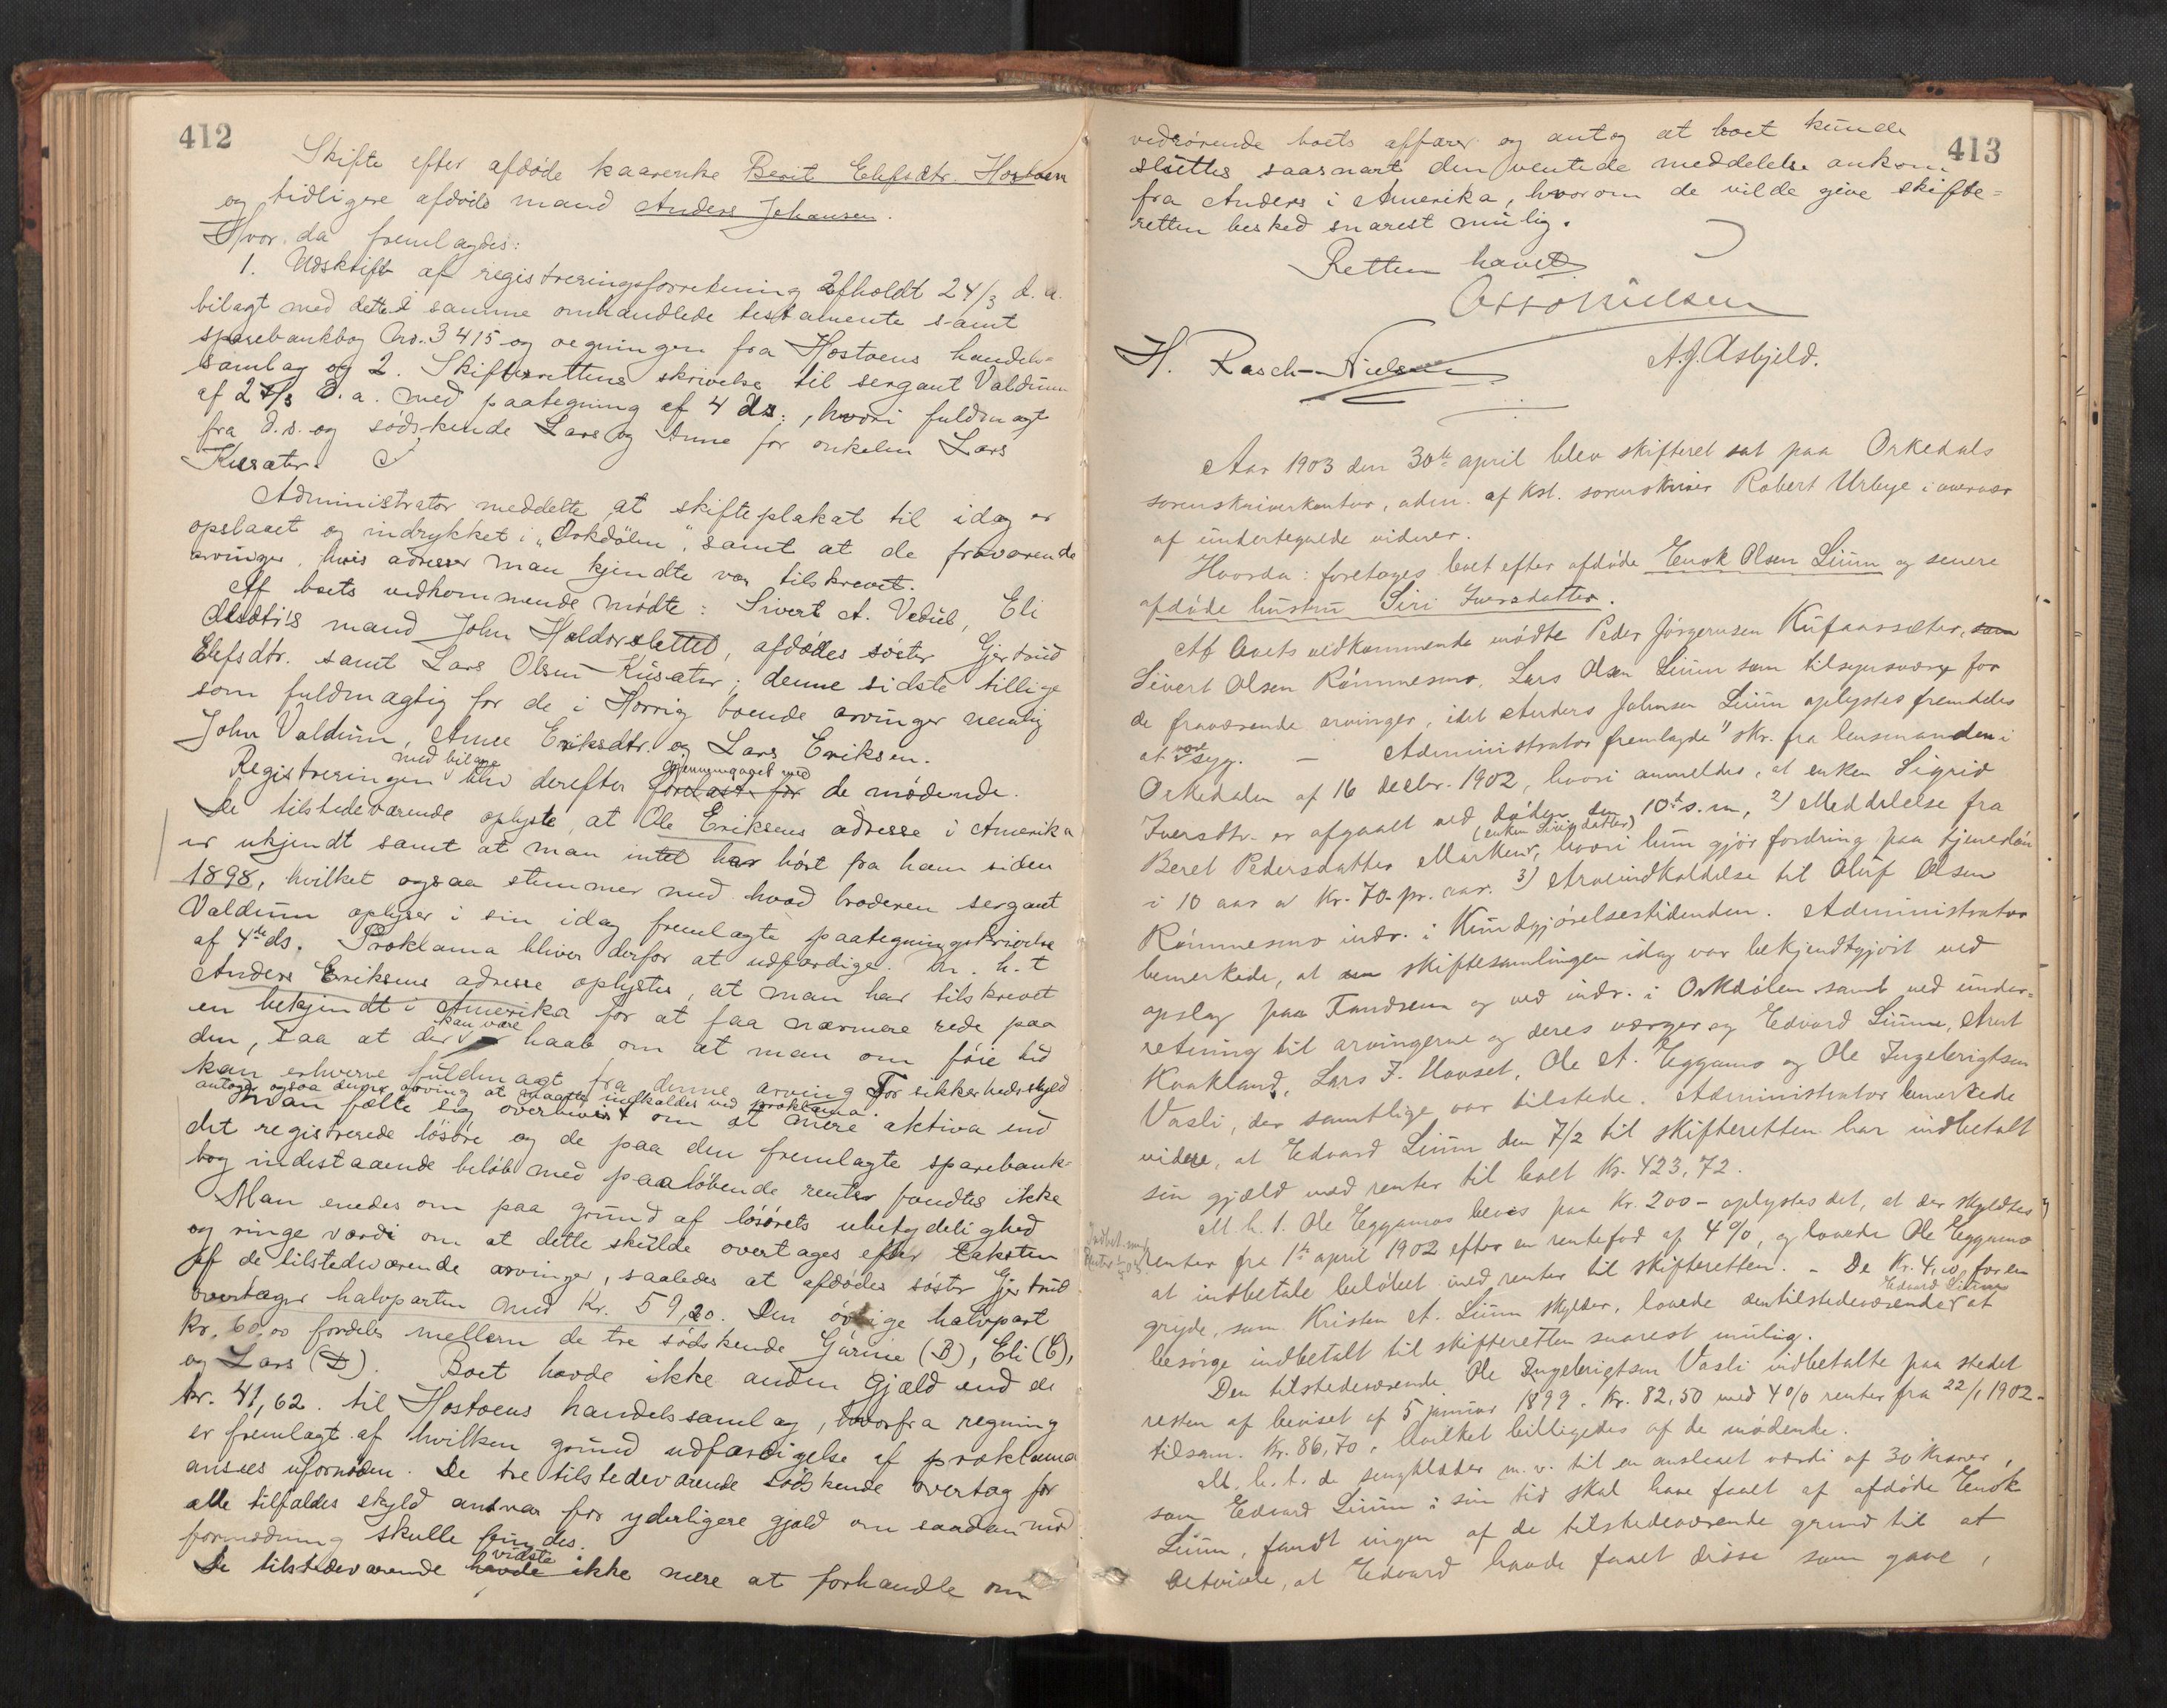 412
Skifte efter afdøde kaarenke Berit Elefsdtr. Hostoen
og tidligere afdøde mand Anders Johansen.
Hvor da fremlagdes:
1. Udskrift af registreringsforretning afholdt 24/3 d. a.
bilagt med dette i samme omhandlede testamente samt
sparebankbog No. 3415 og regningen fra Hostoens handels-
samlag og 2. Skifterettens skrivelse til sergant Valdum
af 27/3 d. a. med paategning af 4 ds., hvori fuldmagt
fra d. s. og sødskende Lars og Anne for onkelen Lars
Kusæter.
Administrator meddelte at skifteplakat til idag er
opslaaet og indrykket i „Orkdølen“, samt at de fraværende
arvinger, hvis adresser man kjendte var tilskrevet.
Af boets vedkommende mødte: Sivert A. Vedul, Eli
Alsdtr's mand John Haldorslettet, afdødes søster Gjertrud
Elefsdtr. samt Lars Olsen Kusæter; denne sidste tillige
som fuldmægtig for de i Horrig boende arvinger nemlig
John Valdum, Anne Eriksdtr. og Lars Eriksen.
med bilage gjennemgaaet med
Registreringen blev derefter forelæst for de mødende.
De tilstedeværende oplyste, at Ole Eriksens adresse i Amerika
er ukjendt samt at man intet har hørt fra ham siden
1898, hvilket ogsaa stemmer med hvad broderen sergant
Valdum oplyser i sin idag fremlagte paategningsskrivelse
af 4de ds. Proklama bliver derfor at udfærdige. M. h. t
Anders Eriksens adresse oplystes, at man har tilskrevet
en bekjendt i Amerika for at faa nærmere rede paa
kan være
den, saa at der haab om at man om føie tid
kan erhverve fuldmagt fra denne arving For sikkerhedsskyld
antoges ogsaa denne arving at maatte indkaldes ved proklama.
Man følte sig overbevist om at mere aktiva end
det registrerede løsøre og de paa den fremlagte sparebank-
bog indestaaende beløb med paaløbende renter fandtes ikke
Man enedes om paa grund af løsørets ubetydelighed
og ringe værdi om at dette skulde overtages efter taksten
af de tilstedeværende arvinger, saaledes at afdødes søster Gjertrud
overtager halvparten med Kr. 59,20. Den øvrige halvpart
Kr. 60,00 fordeles mellem de tre sødskende Gurine (B), Eli (C),
og Lars (D). Boet havde ikke anden gjæld end de
kr. 41,62. til Hostoens handelssamlag, hvorfra regning
er fremlagt af hvilken grund udfærdigelse af proklama
ansees ufornøden. De tre tilstedeværende sødskende overtog for
alle tilfældes skyld ansvar for yderligere gjæld om saadan mod
formodning skulle findes.
vidste
De tilstedeværende havde ikke mere at forhandle om
413
vedrørende boets affærer og antog at boet kunde
sluttes saasnart den ventede meddelelse ankom
fra Anders i Amerika, hvorom de vilde give skifte-
retten besked snarest mulig.
Retten hævet
Otto Nielsen
H. Rasch-Nielsen
A. J. Asbjeld.
Aar 1903 den 30te april blev skifteret sat paa Orkedals
sorenskriverkontor, adm. af kst. sorenskriver Robert Urbye i overvær
af undertegnede vidner.
Hvorda: foretages boet efter afdøde Enok Olsen Liium og senere
afdøde hustru Siri Iversdatter.
Af boets vedkommende mødte Peder Jørgensen Kufaassæter, som
Sivert Olsen Rømmesmo, Lars Olsen Liium som tilsynsværge for
de fraværende arvinger, idet Anders Johnsen Liium oplystes fremdeles
at være syg. — Administrator fremlagde 1) skr. fra lensmanden i
Orkedalen af 16 decbr. 1902, hvori anmeldes, at enken Sigrid
Iversdtr. er afgaaet ved døden den 10de s. m., 2) Meddelelse fra
Beret Pedersdatter Marken, hvori hun gjør fordring paa tjenerløn
i 10 aar a kr. 70 pr. aar. 3) Arveindkaldelse til Oluf Olsen
Rømmesmo indr. i Kundgjørelsestidenden. Administrator
bemerkede, at skiftesamlingen idag var bekjendtgjort ved
opslag paa Fandrem og ved indr. i Orkdølen samt ved under-
retning til arvingerne og deres værger og Edvard Liium, Arnt
Kvakland, Lars J. Hovset, Ole A. Eggamo og Ole Ingebrigtsen
Vasli, der samtlige var tilstede. Administrator bemerkede
videre, at Edvard Liium den 7/2 til skifteretten har indbetalt
sin gjæld med renter til boet Kr. 423,72.
M. h. t. Ole Eggamos bevis paa Kr. 200 – oplystes det, at der skyldtes
renter fra 1te april 1902 efter en rentefod af 4 %, og lovede Ole Eggamo
at indbetale beløbet med renter til skifteretten. – De Kr. 4,00 for en
Edvard Liium
gryde, som Kristen A. Liium skylder, lovede den tilstedeværende at
besørge indbetalt til skifteretten snarest mulig.
Den tilstedeværende Ole Ingebrigtsen Vasli indbetalte paa stedet
resten af beviset af 5 januar 1899. Kr. 82,50 med 4 % renter fra 22/1 1902
tilsam. Kr. 86,70, hvilket billigedes af de mødende.
M. h. t. de sengklæder m. v. til en anslaaet værdi af 30 kroner,
som Edvard Liium i sin tid skal have faaet af afdøde Enok
Liium, fandt ingen af de tilstedeværende grund til at
betvivle, at Edvard havde faaet disse som gave,